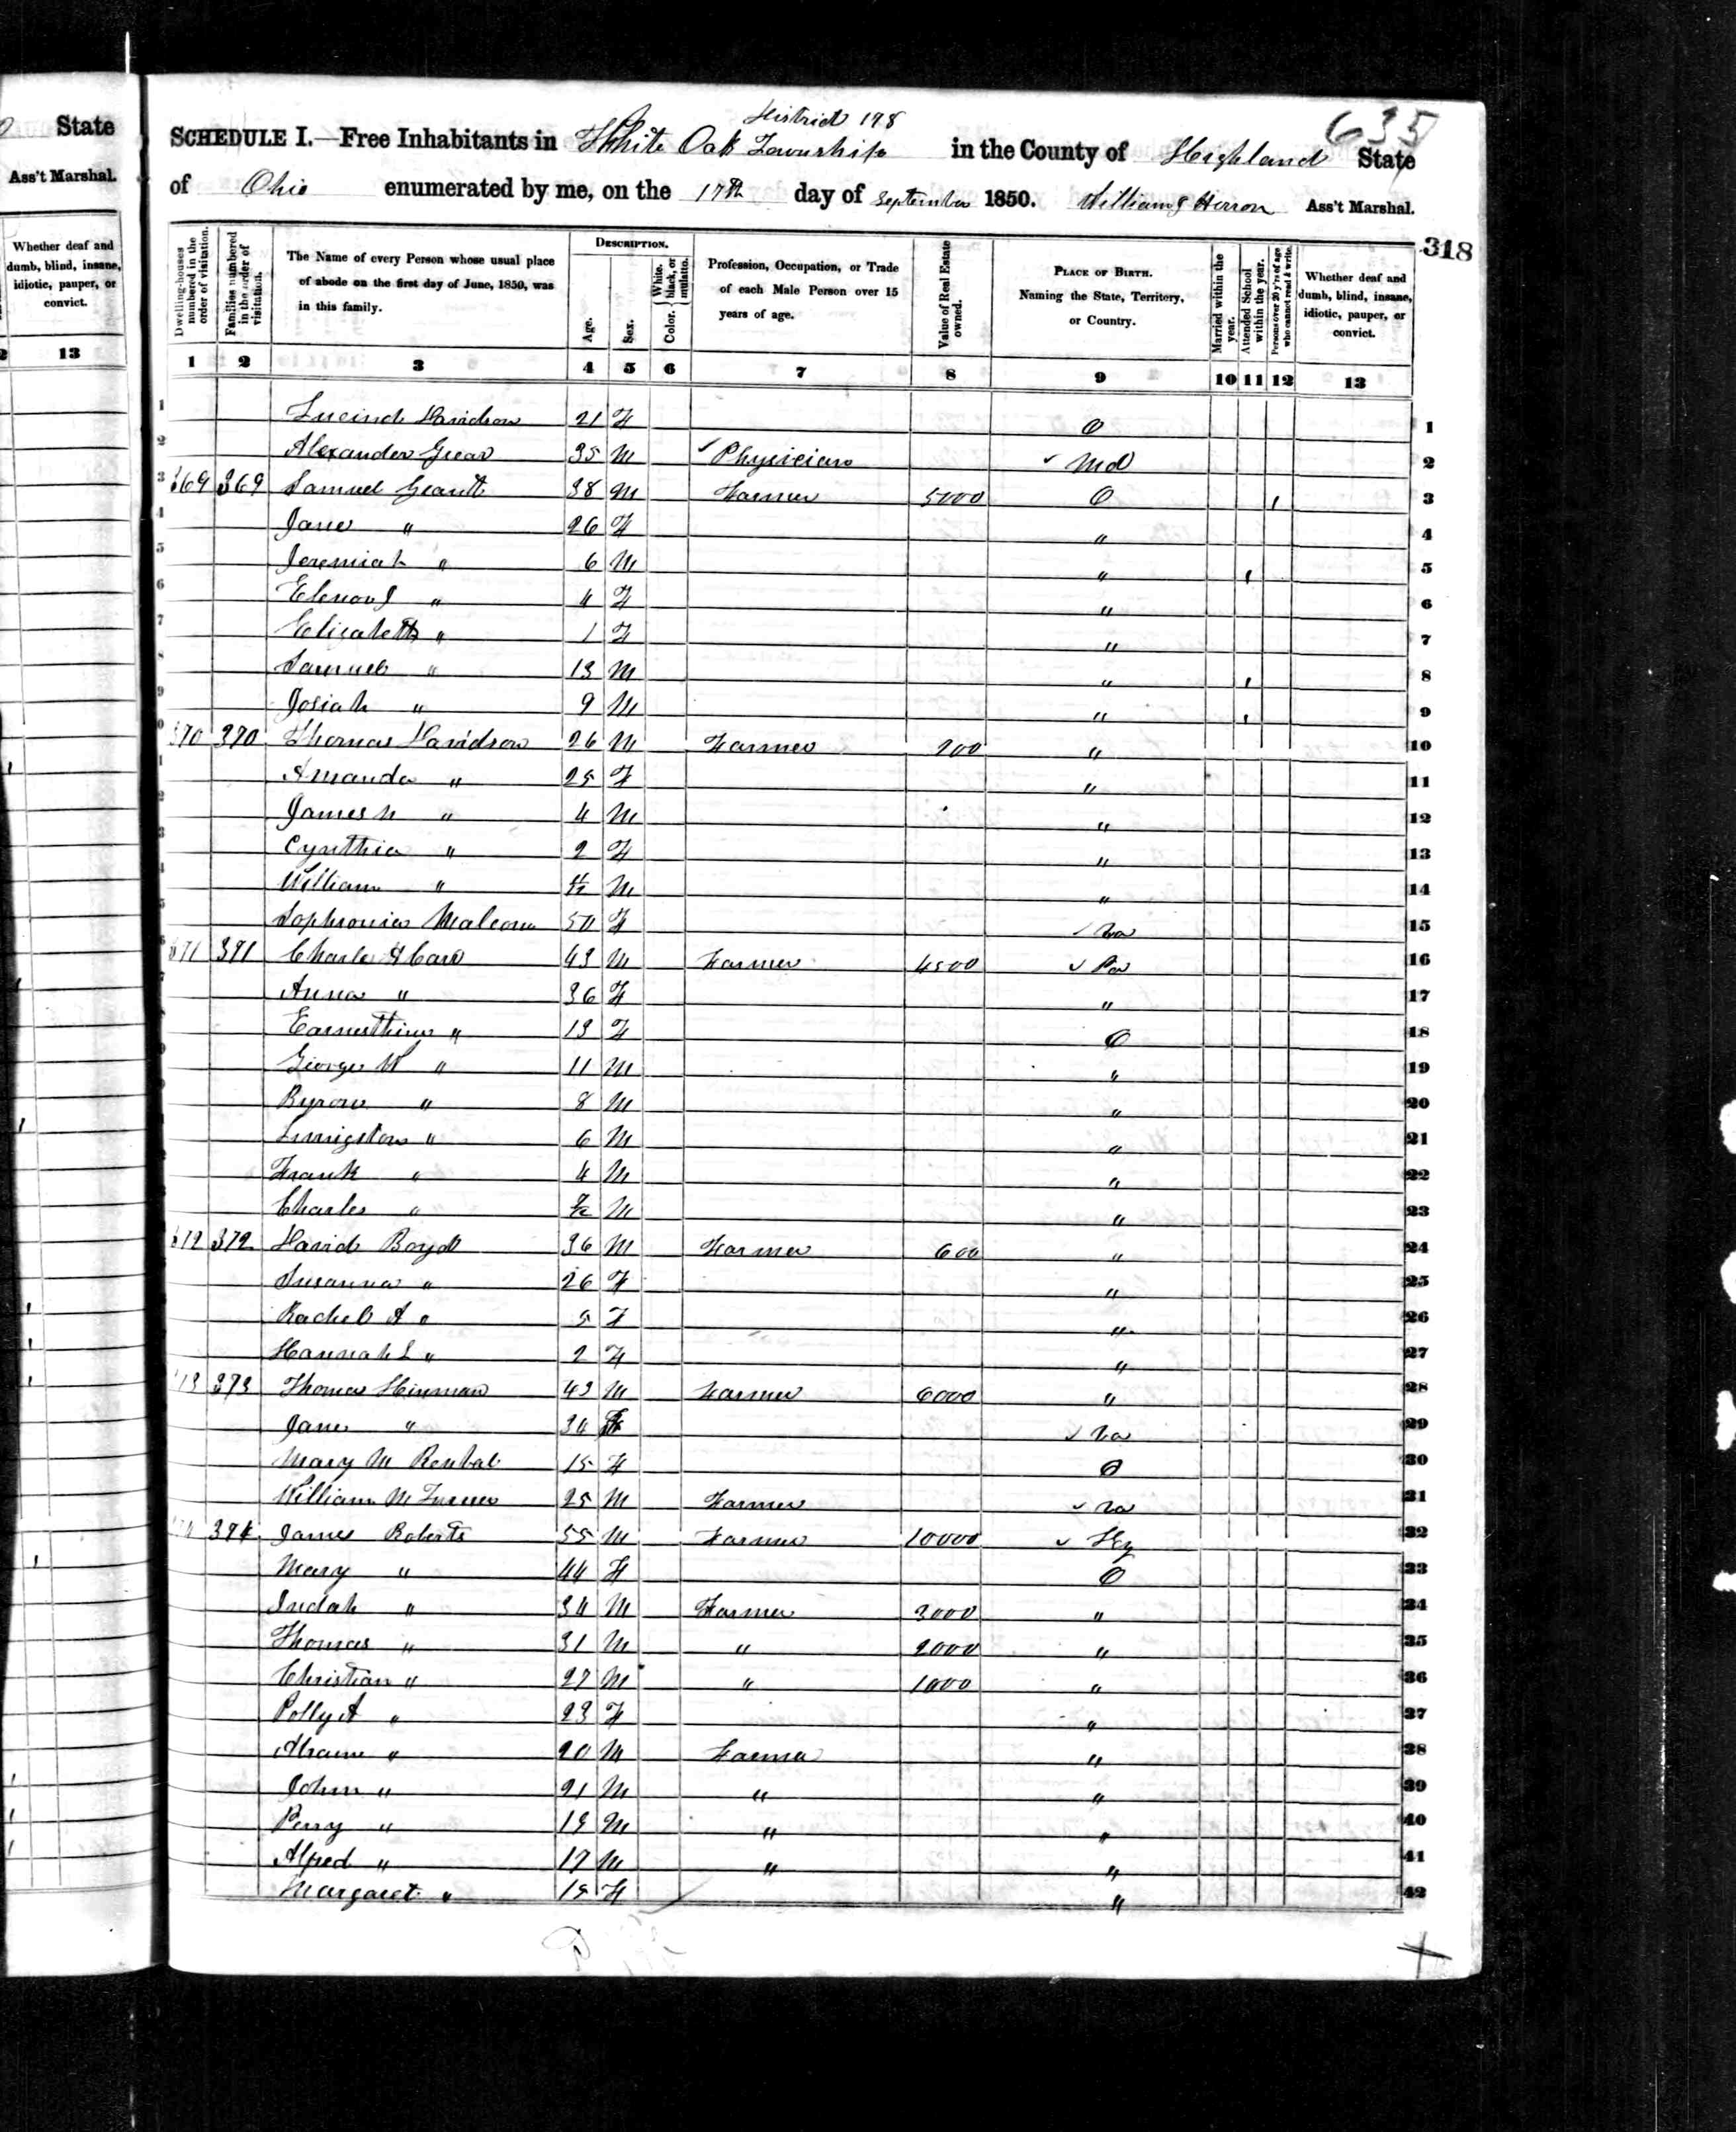 State
Ass't Marshal.
Whether deaf and dumb, blind, insane, idiotic, pauper, or convict.
13
635
District 198
SCHEDULE I.—Free Inhabitants in White Oak Township in the County of Highland State
of Ohio enumerated by me, on the 17th day of September 1850. William J Herron Ass't Marshal.
318
Dwelling-houses numbered in the order of visitation.
Families numbered in the order of visitation.
The Name of every Person whose usual place of abode on the first day of June, 1850, was in this family.
DESCRIPTION.
Age.
Sex.
Color. White, black, or mulatto.
Profession, Occupation, or Trade of each Male Person over 15 years of age.
Value of Real Estate owned.
PLACE OF BIRTH. Naming the State, Territory, or Country.
Married within the year.
Attended School within the year.
Persons over 20 y'rs of age who cannot read & write.
Whether deaf and dumb, blind, insane, idiotic, pauper, or convict.
1 2 3 4 5 6 7 8 9 10 11 12 13
1 Lucind Davidson 21 F O 1
2 Alexander 35 M Physician Md 2
3 369 369 Samuel 38 M Farmer 5000 O 1 3
4 Jane " 26 F " 4
5 Jeremiah " 6 M " 1 5
6 Elenor J " 4 F " 6
7 Elizabeth " 1 F " 7
8 Samuel " 13 M " 1 8
9 Josiah " 9 M " 1 9
370 370 Thomas Davidson 26 M Farmer 200 " 10
Amanda " 25 F " 11
James " 4 M " 12
Cynthia " 2 F " 13
William " M " 14
Sophronia Malcom 50 F Va 15
371 371 Charles 43 M Farmer 4500 Pa 16
Anna " 36 F " 17
Earnesthine " 13 F O 18
George W " 11 M " 19
Byron " 8 M " 20
Livingston " 6 M " 21
Frank " 4 M " 22
Charles " M " 23
372 372 David Boyd 36 M Farmer 600 " 24
Susanna " 26 F " 25
Rachel A " 5 F " 26
Hannah L " 2 F " 27
373 373 Thomas Hinman 43 M Farmer 6000 " 28
Jane " 34 F Va 29
Mary M 15 F O 30
William M Turner 25 M Farmer Va 31
374 James Roberts 55 M Farmer 10000 Ky 32
Mary " 44 F O 33
Judah " 34 M Farmer 3000 " 34
Thomas " 31 M " 2000 " 35
Christian " 27 M " 1000 " 36
Polly A " 23 F " 37
Abram " 20 M Farmer " 38
John " 21 M " " 39
Perry " 19 M " " 40
Alfred " 17 M " " 41
Margaret " 15 F " 42